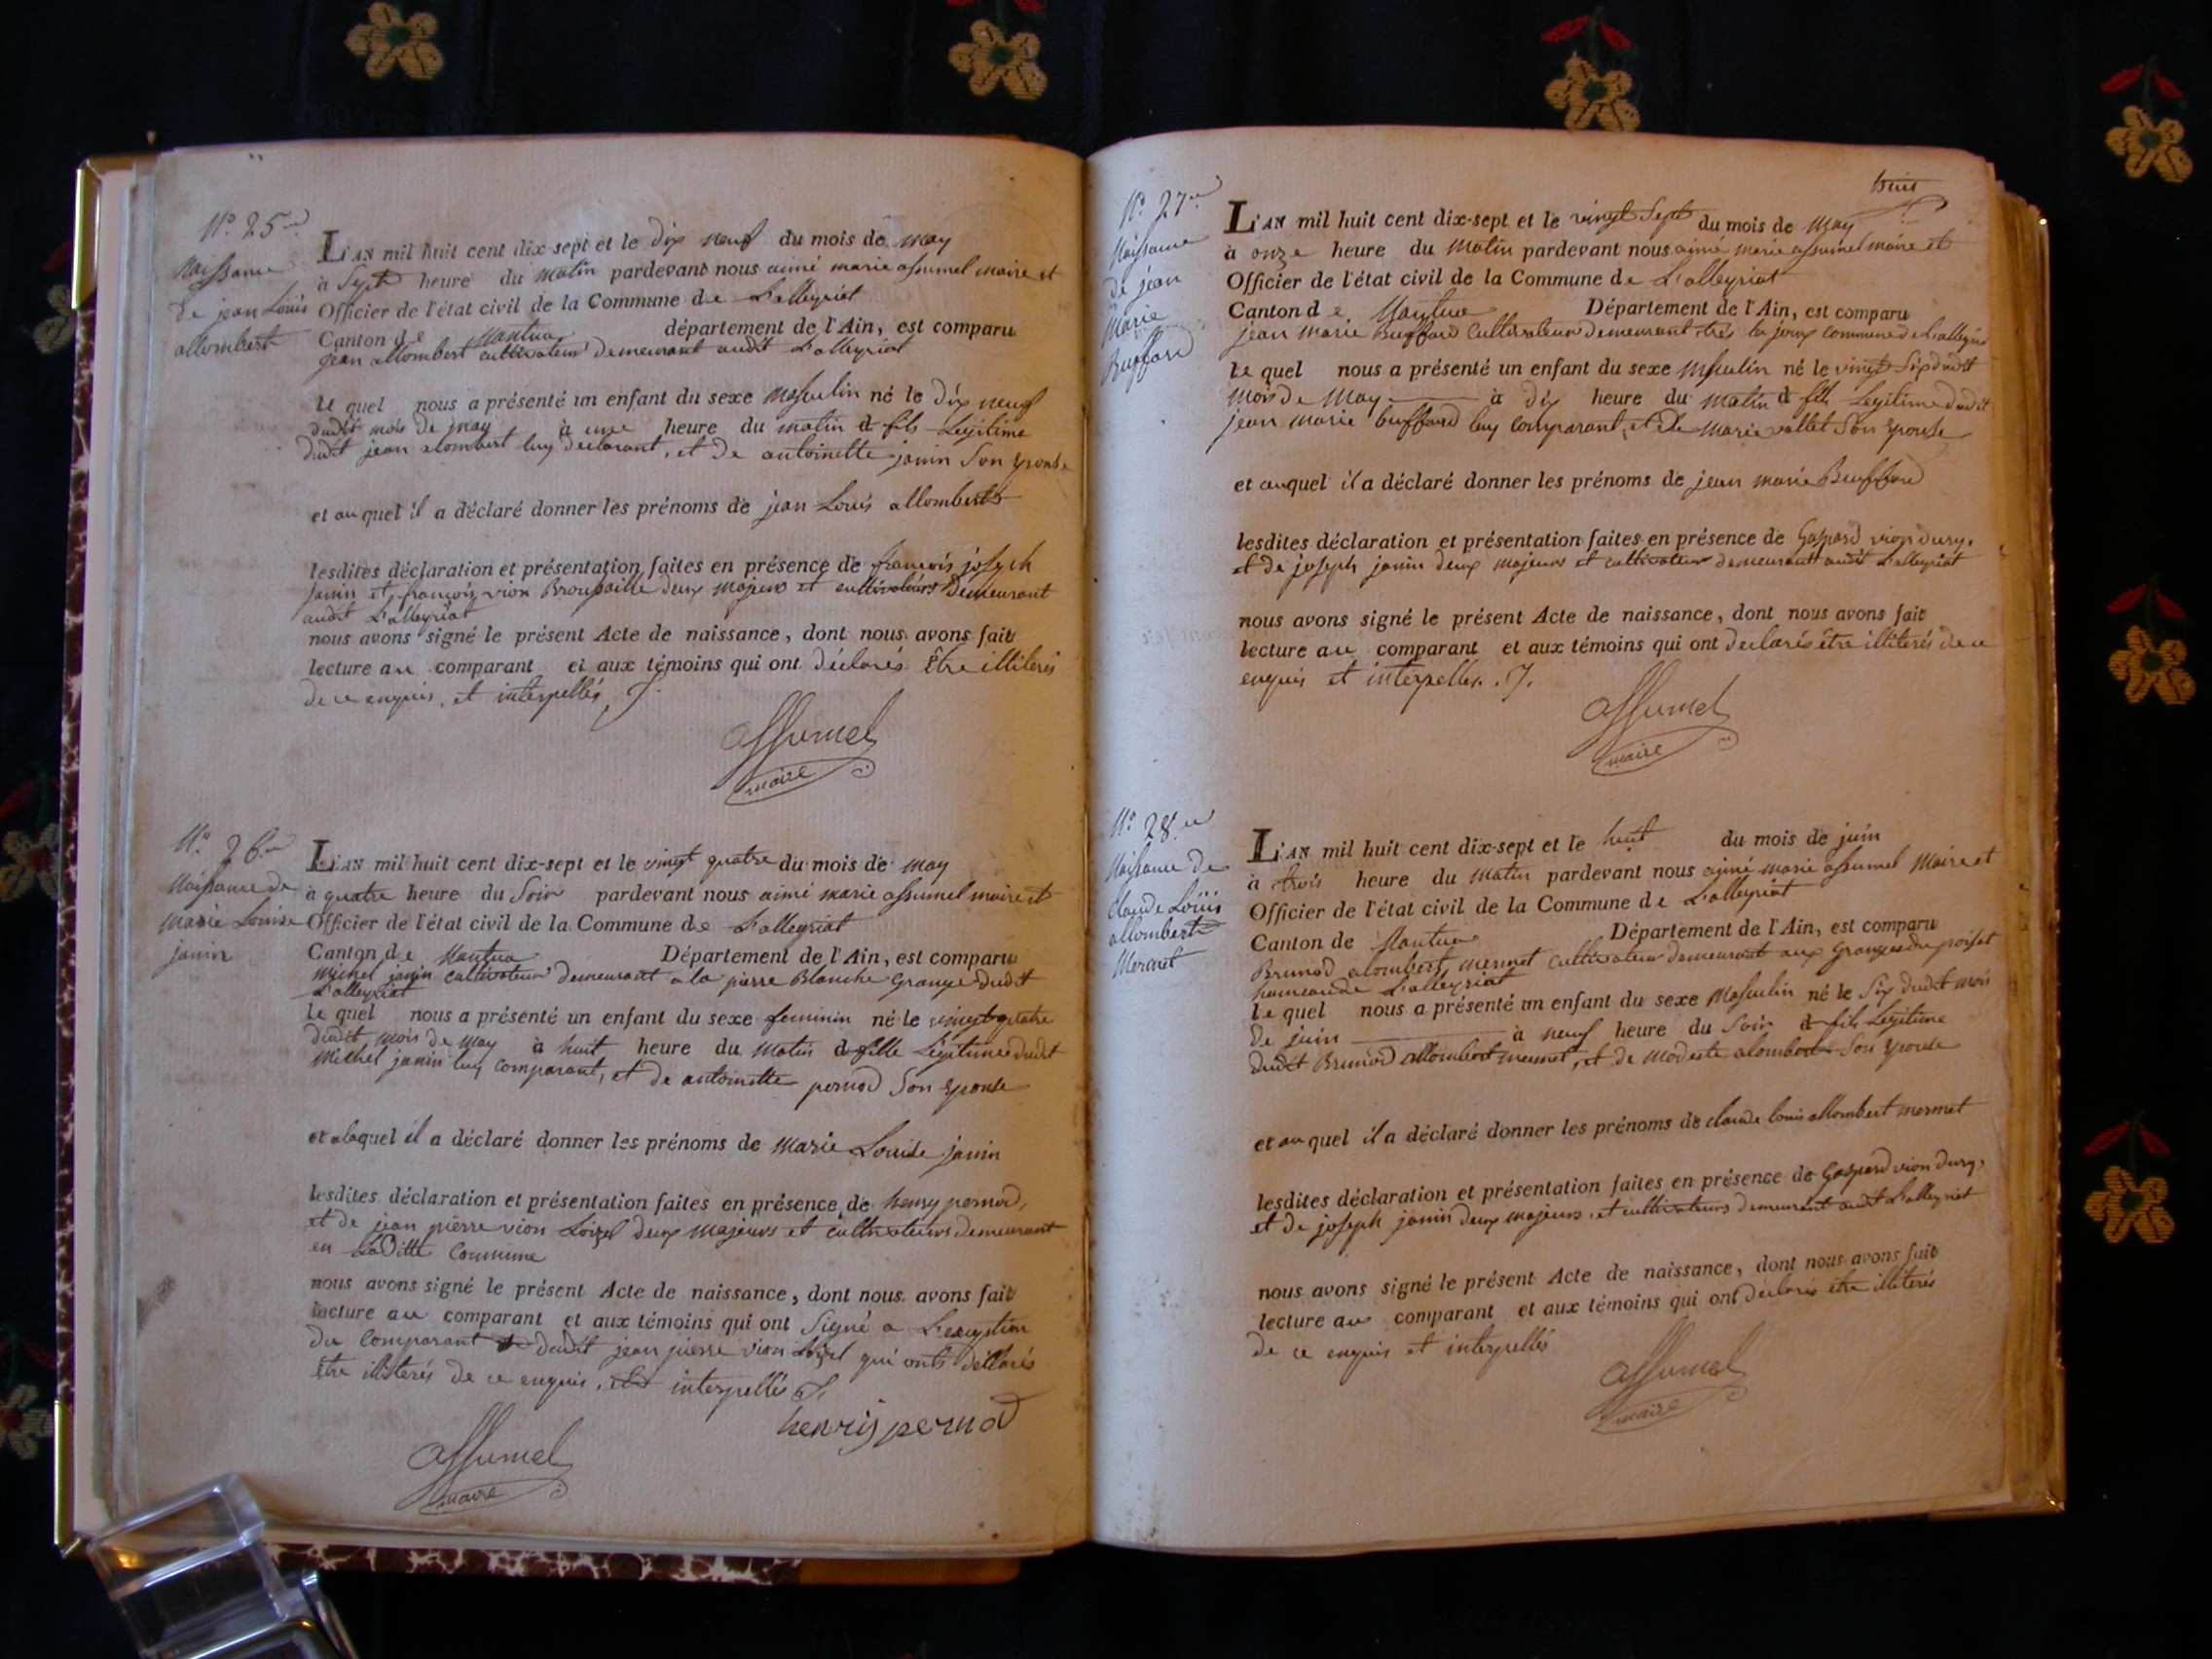 N.º 25.e
Naissance
De jean Loüis
allombert
L'AN mil huit cent dix-sept et le dix neuf du mois de may
à Sept heure du matin pardevant nous aimé marie assumel maire et
Officier de l'état civil de la Commune de L'alleyriat
Canton de Nantua département de l'Ain, est comparu
jean allombert cultivateur demeurant audit L'alleyriat
le quel nous a présenté un enfant du sexe Masculin né le dix neuf
dudit mois de may à une heure du matin & fils Legitime
dudit jean alombert luy declarant, et de antoinette janin Son epouse
et au quel il a déclaré donner les prénoms de jean Louis allombert
lesdites déclaration et présentation faites en présence de françois joseph
janin et françois vion Broupaille deux majeurs et cultivateurs demeurant
audit L'alleyriat
nous avons signé le présent Acte de naissance, dont nous avons fait
lecture au comparant et aux témoins qui ont déclarés être illiterés
de ce enquis, et interpellés
assumel
maire
N.º 26.e
Naissance de
Marie Louise
janin
L'AN mil huit cent dix-sept et le vingt quatre du mois de may
à quatre heure du Soir pardevant nous aimé marie assumel maire et
Officier de l'état civil de la Commune de L'alleyriat
Canton de Nantua Département de l'Ain, est comparu
Michel janin cultivateur demeurant a la pierre Blanche Grange dudit
L'alleyriat
le quel nous a présenté un enfant du sexe feminin né le vingt quatre
dudit mois de may à huit heure du Matin & fille Legitime dudit
Michel janin luy comparant, et de antoinette pernod Son epouse
et a laquel il a déclaré donner les prénoms de Marie Louise janin
lesdites déclaration et présentation faites en présence de henry pernod,
et de jean pierre vion Loizel deux majeurs et cultivateurs demeurant
en Laditte Commune
nous avons signé le présent Acte de naissance, dont nous avons fait
lecture au comparant et aux témoins qui ont Signé a L'exception
du comparant dudit jean pierre vion Loizel qui onts déclarés
être illiterés de ce enquis, et interpellés
henry pernod
assumel
maire
N.º 27.e
Naissance
de jean
Marie
Buffard
L'AN mil huit cent dix-sept et le vingt Sept du mois de may
à onze heure du Matin pardevant nous aimé marie assumel maire et
Officier de l'état civil de la Commune de L'alleyriat
Canton de Nantua Département de l'Ain, est comparu
jean marie Buffard Cultivateur demeurant très la joux commune de L'alleyriat
le quel nous a présenté un enfant du sexe Masculin né le vingt Six dudit
mois de May à dix heure du Matin & fils Legitime dudit
jean marie buffard luy comparant, et de marie vallet Son epouse
et auquel il a déclaré donner les prénoms de jean marie Buffard
lesdites déclaration et présentation faites en présence de Gaspard vion dury,
et de joseph janin deux majeurs et cultivateurs demeurant audit L'alleyriat
nous avons signé le présent Acte de naissance, dont nous avons fait
lecture au comparant et aux témoins qui ont declarés être illiterés de ce
enquis et interpellés
assumel
maire
N.º 28.e
Naissance de
Claude Loüis
allombert
Mermet
L'AN mil huit cent dix-sept et le huit du mois de juin
à trois heure du Matin pardevant nous aimé marie assumel Maire et
Officier de l'état civil de la Commune de L'alleyriat
Canton de Nantua Département de l'Ain, est comparu
Brunod alombert mermet cultivateur demeurant aux Granges du poiset
hameau de L'alleyriat
le quel nous a présenté un enfant du sexe Masculin né le Six dudit mois
de juin à neuf heure du Soir & fils Legitime
dudit Brunod allombert mermet, et de modeste alombert Son epouse
et au quel il a déclaré donner les prénoms de claude louis allombert mermet
lesdites déclaration et présentation faites en présence de Gaspard vion dury,
et de joseph janin deux majeurs et cultivateurs demeurant audit L'alleyriat
nous avons signé le présent Acte de naissance, dont nous avons fait
lecture au comparant et aux témoins qui ont déclarés être illiterés
de ce enquis et interpellés
assumel
maire